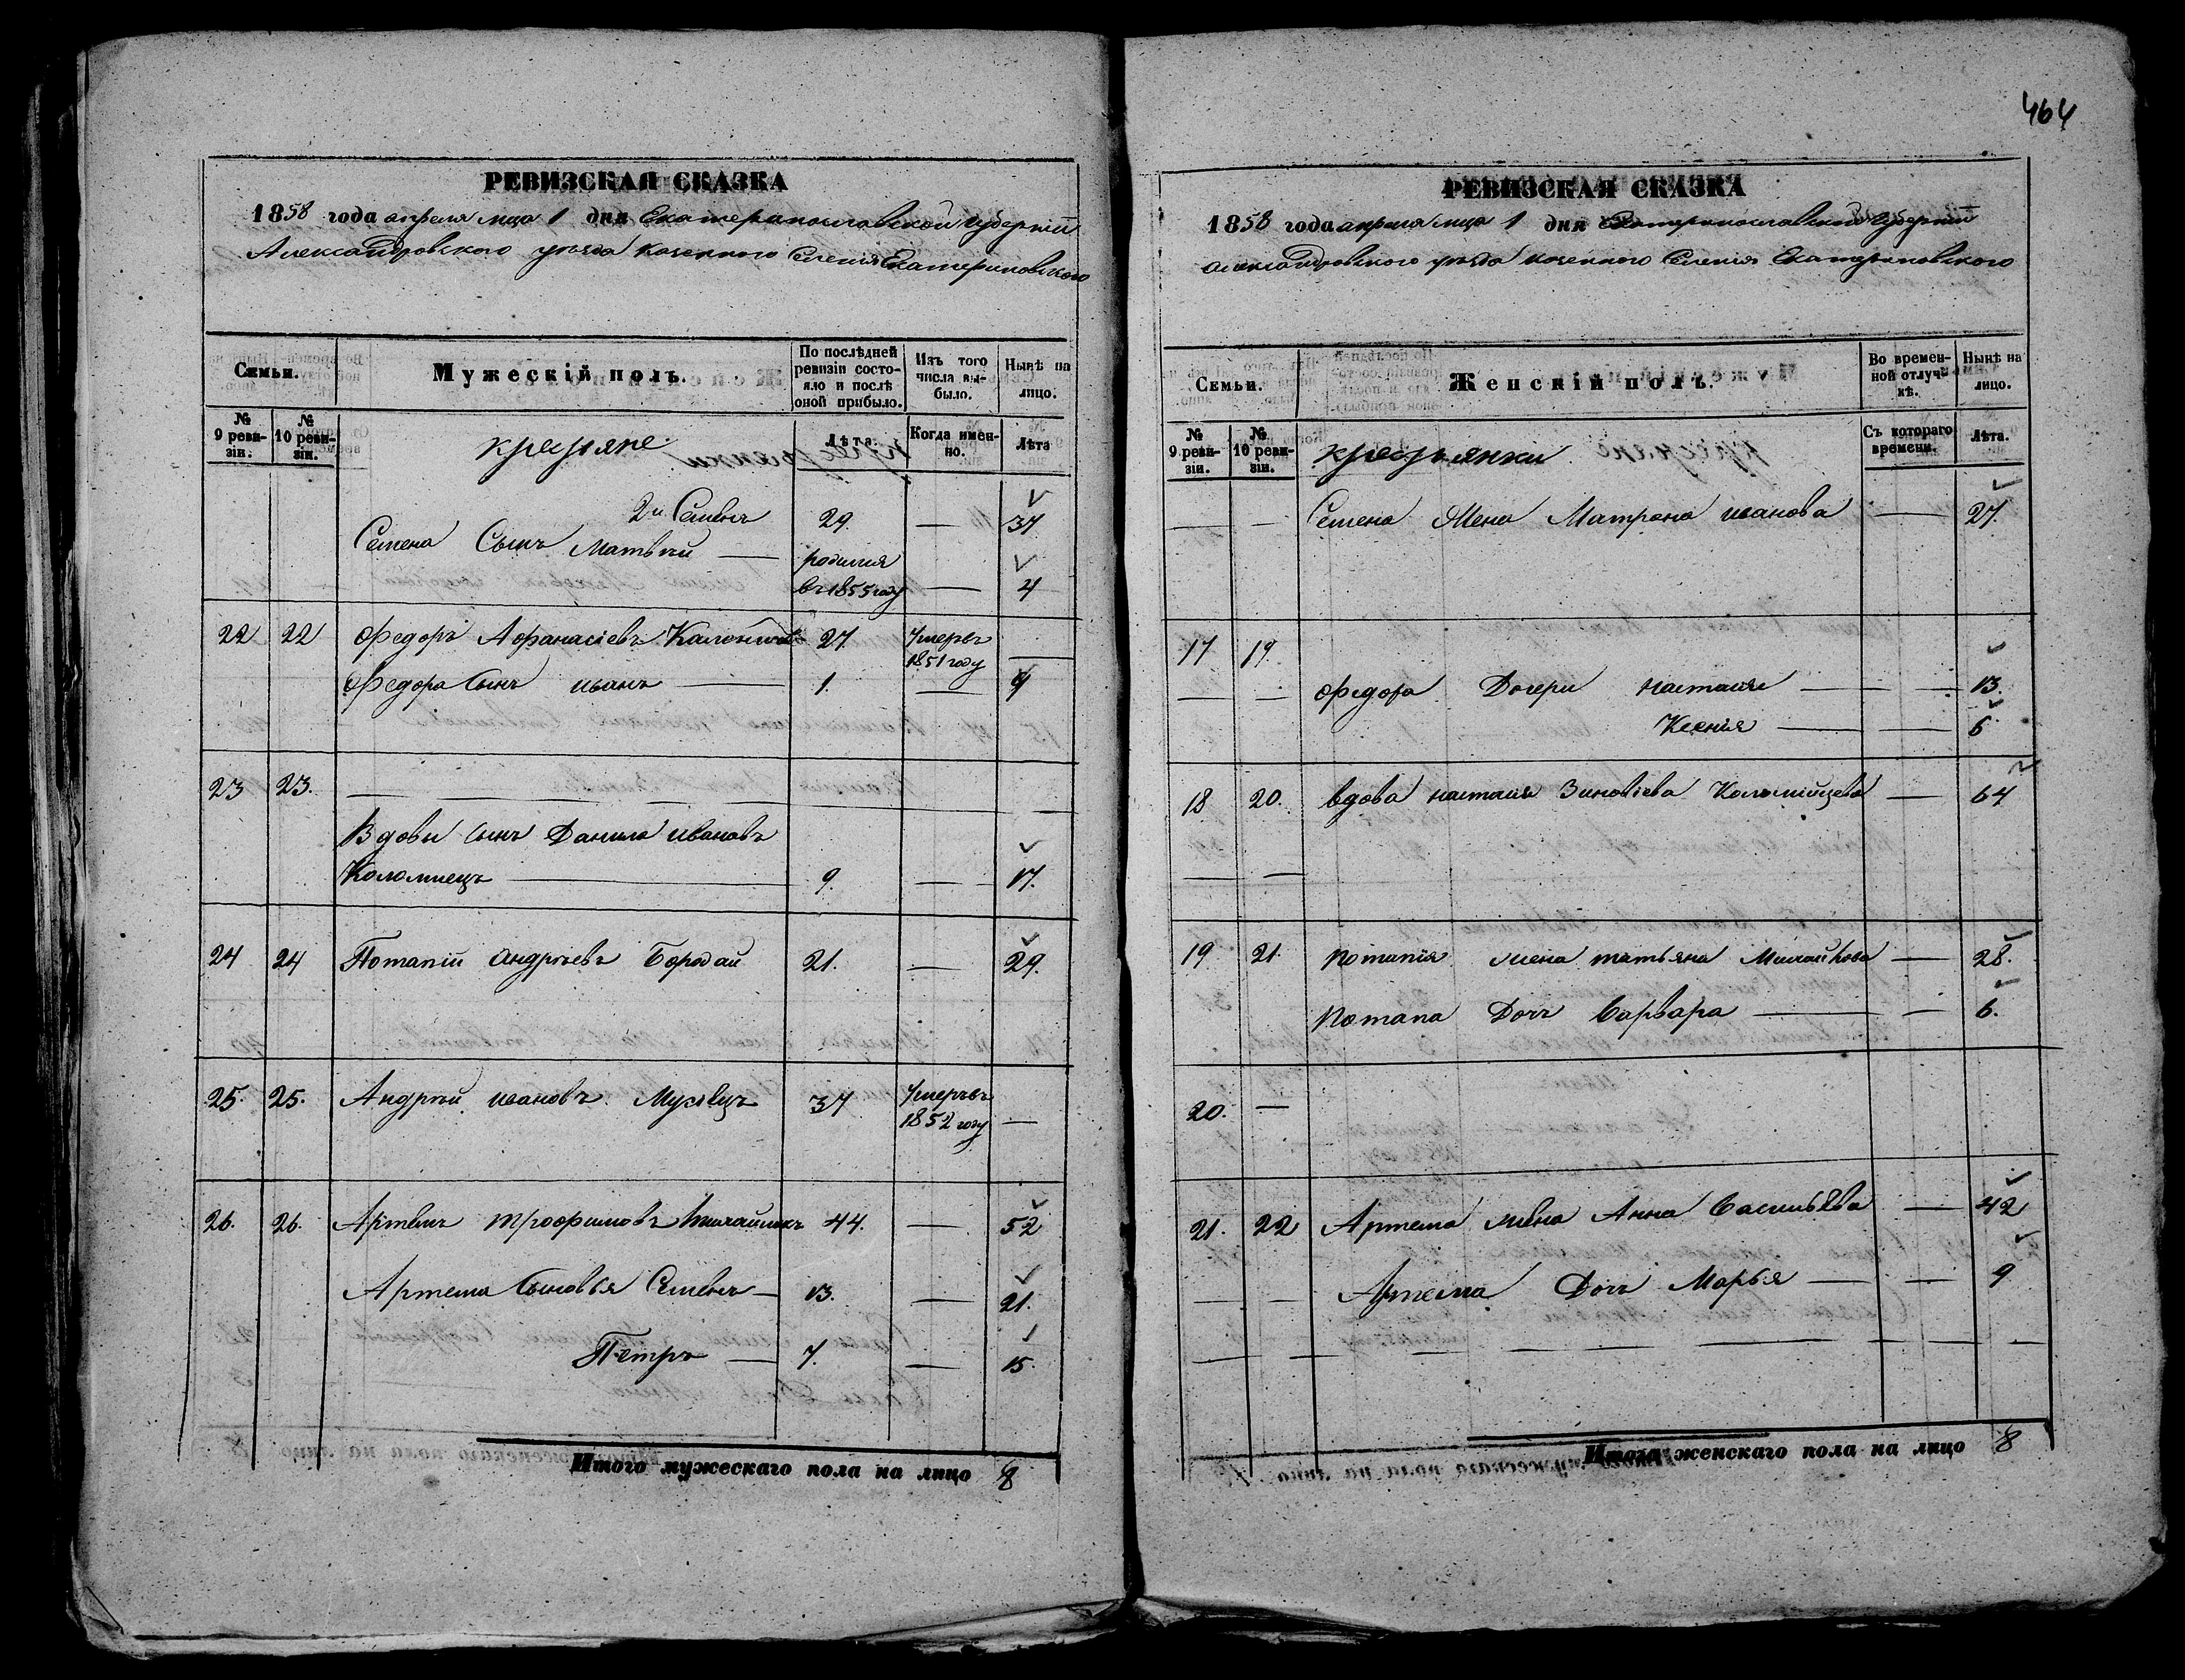 464
РЕВИЗСКАЯ СКАЗКА
1858 года апреля мца 1 дня Екатеринославской губернiи
Александровского уѣзда казенного Селенiя Екатериновского
Семьи.
Мужескiй полъ.
По послѣдней ревизiи состояло и послѣ оной прибыло.
Изъ того числа выбыло.
Нынѣ на лицо.
№ 9 ревизiи.
№ 10 ревизiи.
крестяне
Лѣта.
Когда именно.
Лѣта
2й Семенъ 29. — 37
Семена Сынъ Матвѣй — родился
въ 1855 году — 4
22 22 Федоръ Афанасiевъ 27. Умеръ въ
1851 году —
Федора Сынъ иванъ — 1. — 9
23 23. —
Вдовы Сынъ Данило Ивановъ
Коломиецъ — 9. — 17.
24 24 Потапiй Андрѣевъ Бородай 21. — 29.
25. 25. Андрѣй ивановъ 37 Умеръ въ
1852 году —
26. 26. Артемъ Трофимовъ 44. — 52
Артема Сыновья Семенъ — 13. — 21.
Петръ — 7. — 15.
Итого мужескаго пола на лицо 8
РЕВИЗСКАЯ СКАЗКА
1858 года апреля мца 1 дня Екатеринославской губернiи
Александровского уѣзда казенного Селенiя Екатериновского
Семьи.
Женскiй полъ.
Во временной отлучкѣ.
Нынѣ на лицо.
№ 9 ревизiи.
№ 10 ревизiи.
крестянки
Съ котораго времени.
Лѣта.
— — Семена Жена Матрона иванова — 27.
17 19.
— — Федора Дочери настасия — — 13.
Ксенiя — — 6.
18 20. вдова настасия Зиновiева Коломiйцева — 64
— —
19 21. Потапiя жена татьяна — 28.
Потапа Дочь Варвара — — 6.
20. —
21. 22 Артема жена Анна Васильева — 42
— — Артема Дочь Марья — — 9
— — — — — —
Итого женскаго пола на лицо 8